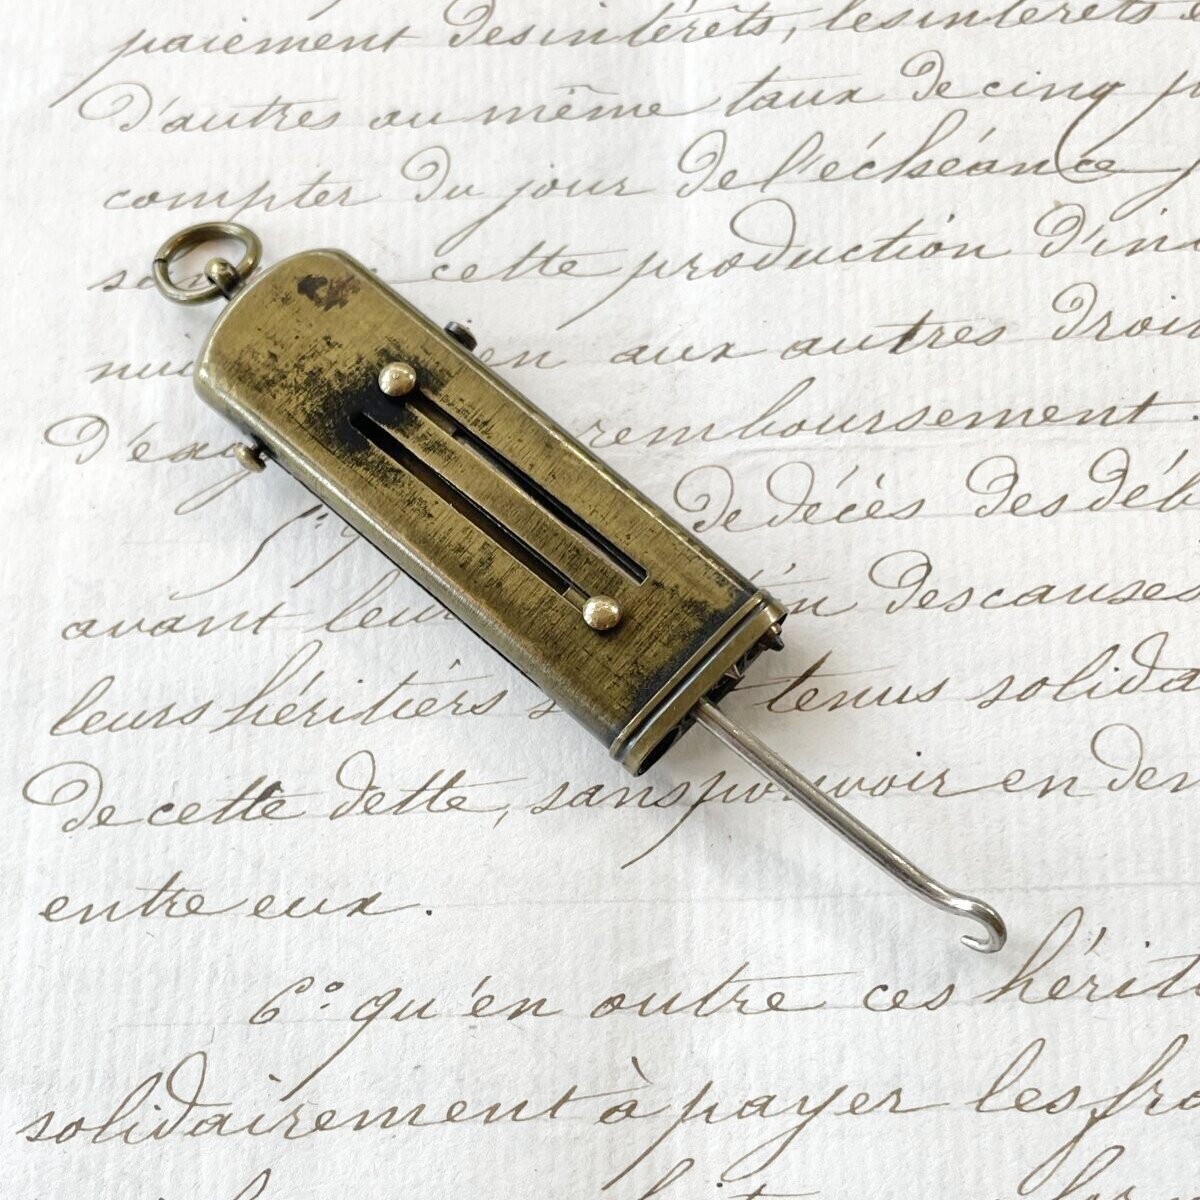 paiement des intérêts, les intérêts
d'autres au même taux de cinq
compter du jour de l'échéance
cette production d'in
en aux autres droi
d'exig remboursement
5° de décès des déb
avant leu in des causes
leurs héritiers s tenus solida
de cette dette, sans pouvoir en den
entre eux.
6° qu'en outre ces hérit
solidairement à payer les fra